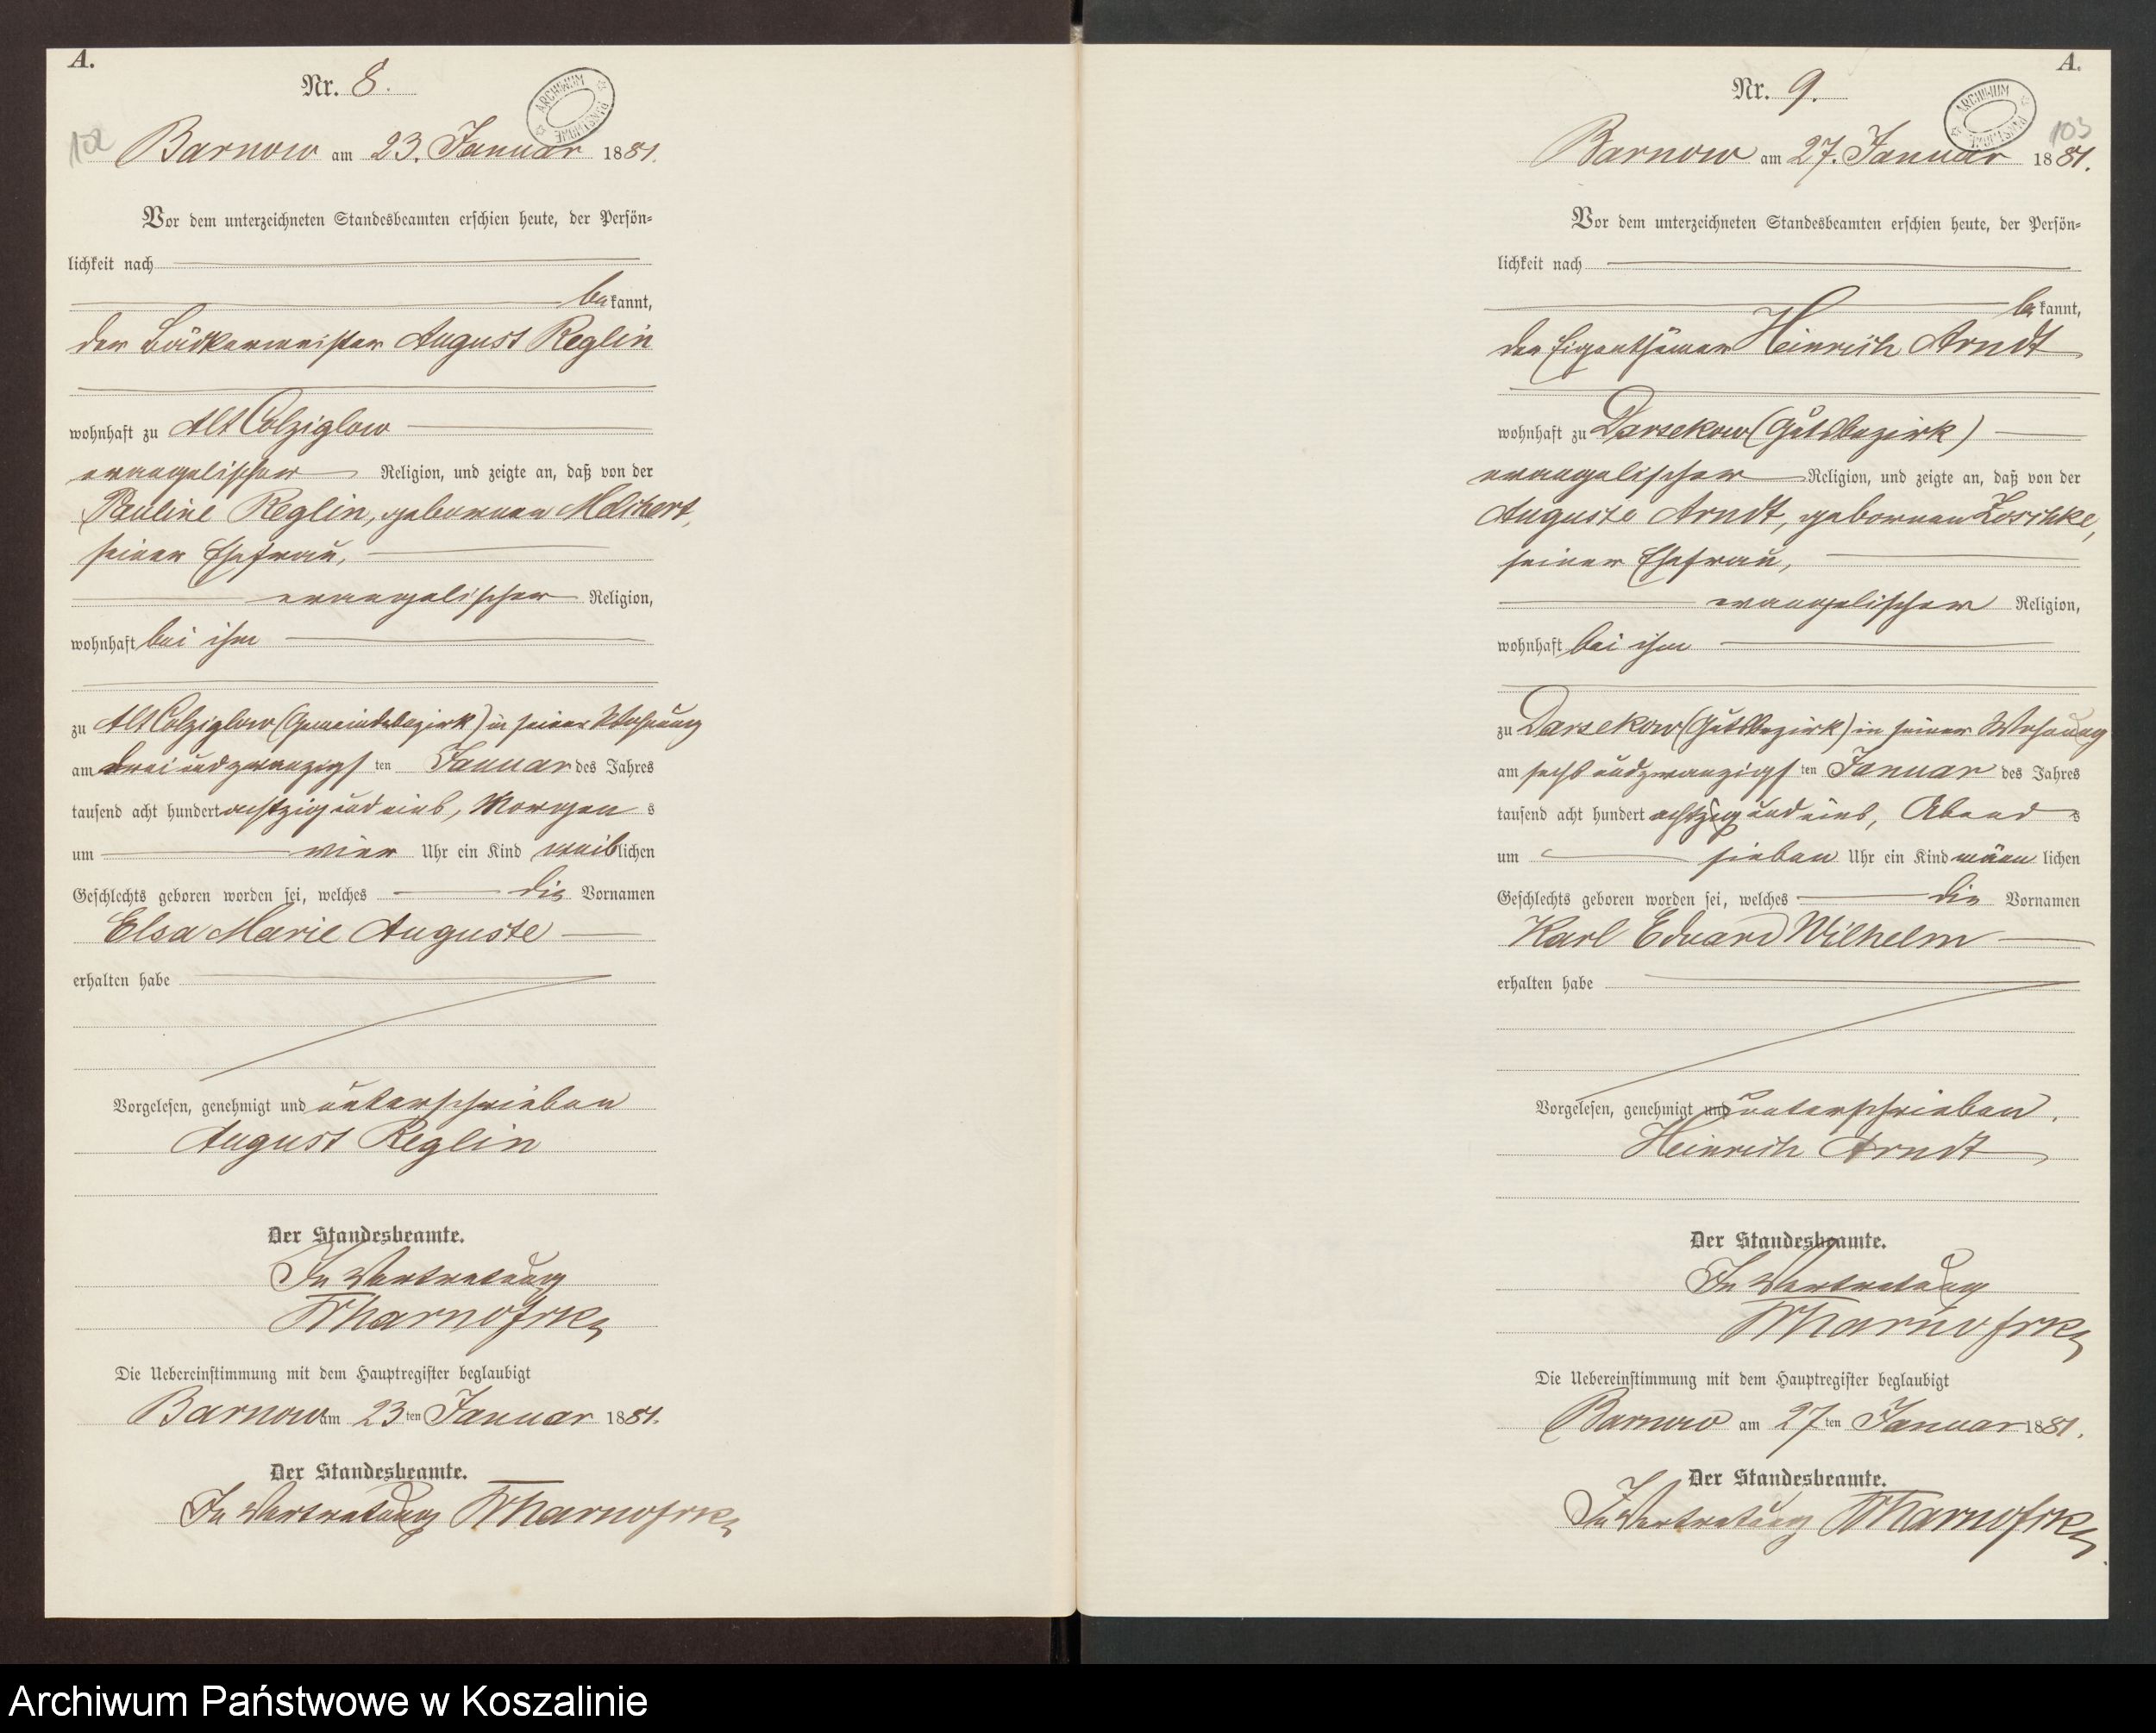 A.
Nr. 8.
ARCHIWUM PAŃSTWOWE
102
Barnow am 23. Januar 1881.
Vor dem unterzeichneten Standesbeamten erschien heute, der Persön-
lichkeit nach
bekannt,
der Bäckermeister August Reglin
wohnhaft zu Alt Colziglow
evangelischer Religion, und zeigte an, daß von der
Pauline Reglin, geborenen Melchert,
seiner Ehefrau,
evangelischer Religion,
wohnhaft bei ihm
zu Alt Colziglow (Gemeindebezirk) in seiner Wohnung
am dreiundzwanzigsten Januar des Jahres
tausend acht hundert achtzig und eins, Morgens
um vier Uhr ein Kind weiblichen
Geschlechts geboren worden sei, welches die Vornamen
Elsa Marie Auguste
erhalten habe
Vorgelesen, genehmigt und unterschrieben
August Reglin
Der Standesbeamte.
In Vertretung
Die Uebereinstimmung mit dem Hauptregister beglaubigt
Barnow am 23ten Januar 1881.
Der Standesbeamte.
In Vertretung
A.
Nr. 9.
ARCHIWUM PAŃSTWOWE
103
Barnow am 27. Januar 1881.
Vor dem unterzeichneten Standesbeamten erschien heute, der Persön-
lichkeit nach
bekannt,
der Eigenthümer Heinrich Arndt
wohnhaft zu Darsekow (Gutsbezirk)
evangelischer Religion, und zeigte an, daß von der
Auguste Arndt, geborenen Zoschke,
seiner Ehefrau,
evangelischer Religion,
wohnhaft bei ihm
zu Darsekow (Gutsbezirk) in seiner Wohnung
am sechsundzwanzigsten Januar des Jahres
tausend acht hundert achtzig und eins, Abends
um sieben Uhr ein Kind männlichen
Geschlechts geboren worden sei, welches die Vornamen
Karl Eduard Wilhelm
erhalten habe
Vorgelesen, genehmigt und unterschrieben.
Heinrich Arndt
Der Standesbeamte.
In Vertretung
Die Uebereinstimmung mit dem Hauptregister beglaubigt
Barnow am 27ten Januar 1881.
Der Standesbeamte.
In Vertretung
Archiwum Państwowe w Koszalinie